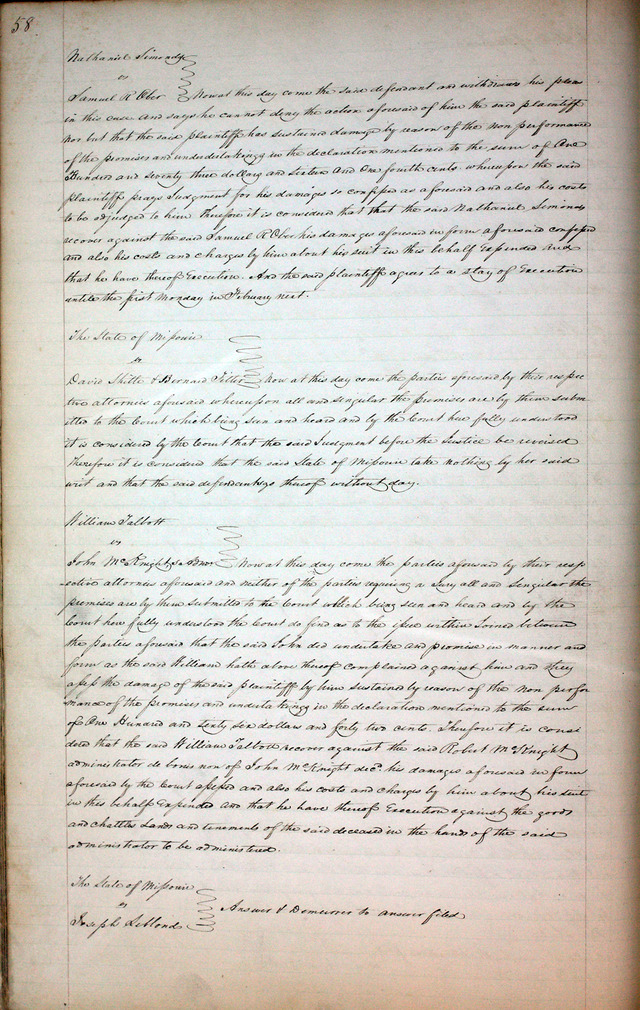 58
Nathaniel Simonds
vs
Samuel R Ober Now at this day come the said defendant and withdraws his plea
in this case and says he cannot deny the action aforesaid of him the said plaintiff
nor but that the said plaintiff has sustained damage by reason of the non performance
of the promises and undertakings in the declaration mentioned to the sum of One
Hundred and seventy three dollars and sixteen and One fourth cents whereupon the said
plaintiff prays Judgment for his damages so confessed as aforesaid and also his costs
to be adjudged to him Therefore it is considered that that the said Nathaniel Simonds
recover against the said Samuel R Ober his damages aforesaid in form aforesaid confessed
and also his costs and charges by him about his suit in this behalf Expended and
that he have thereof Execution. And the said plaintiff agrees to a stay of Execution
untill the first Monday in February next.
The State of Missouri
vs
David Shitte & Bernard Now at this day come the parties aforesaid by their respec
tive attornies aforesaid whereupon all and singular the Premises are by them subm
itted to the Court which being seen and heard and by the Court here fully understood
it is considered by the Court that the said Judgment before the Justice be reversed
Therefore it is considered that the said State of Missouri take nothing by her said
writ and that the said defendants go thereof without day.
William Talbott
vs
John McKnights Admr Now at this day come the parties aforesaid by their resp
ective attornies aforesaid and neither of the parties requiring a Jury all and singular the
premises are by them submitted to the Court which being seen and heard and by the
Court here fully understood the Court do find as to the issue within Joined between
the parties aforesaid that the said John did undertake and promise in manner and
form as the said William hath above thereof complained against him and they
assess the damage of the said plaintiff by him sustained by reason of the non perfor
mance of the promises and undertakings in the declaration mentioned to the sum
of One Hundred and Sixty Six dollars and forty two cents. Therefore it is consi
dered that the said William Talbott recover against the said Robert McKnight
administrator de bonis non of John McKnight decd. his damages aforesaid in form
aforesaid by the Court assessed and also his costs and charges by him about his suit
in this behalf Expended and that he have thereof Execution against the goods
and chattles Lands and tenements of the said deceased in the hands of the said
administrator to be administered.
The State of Missouri
vs
Joseph Leblond Answer & Demurrer to answer filed